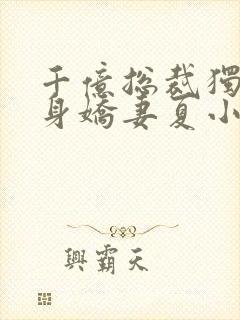 千億總裁獨
身嬌妻夏小
興霸天